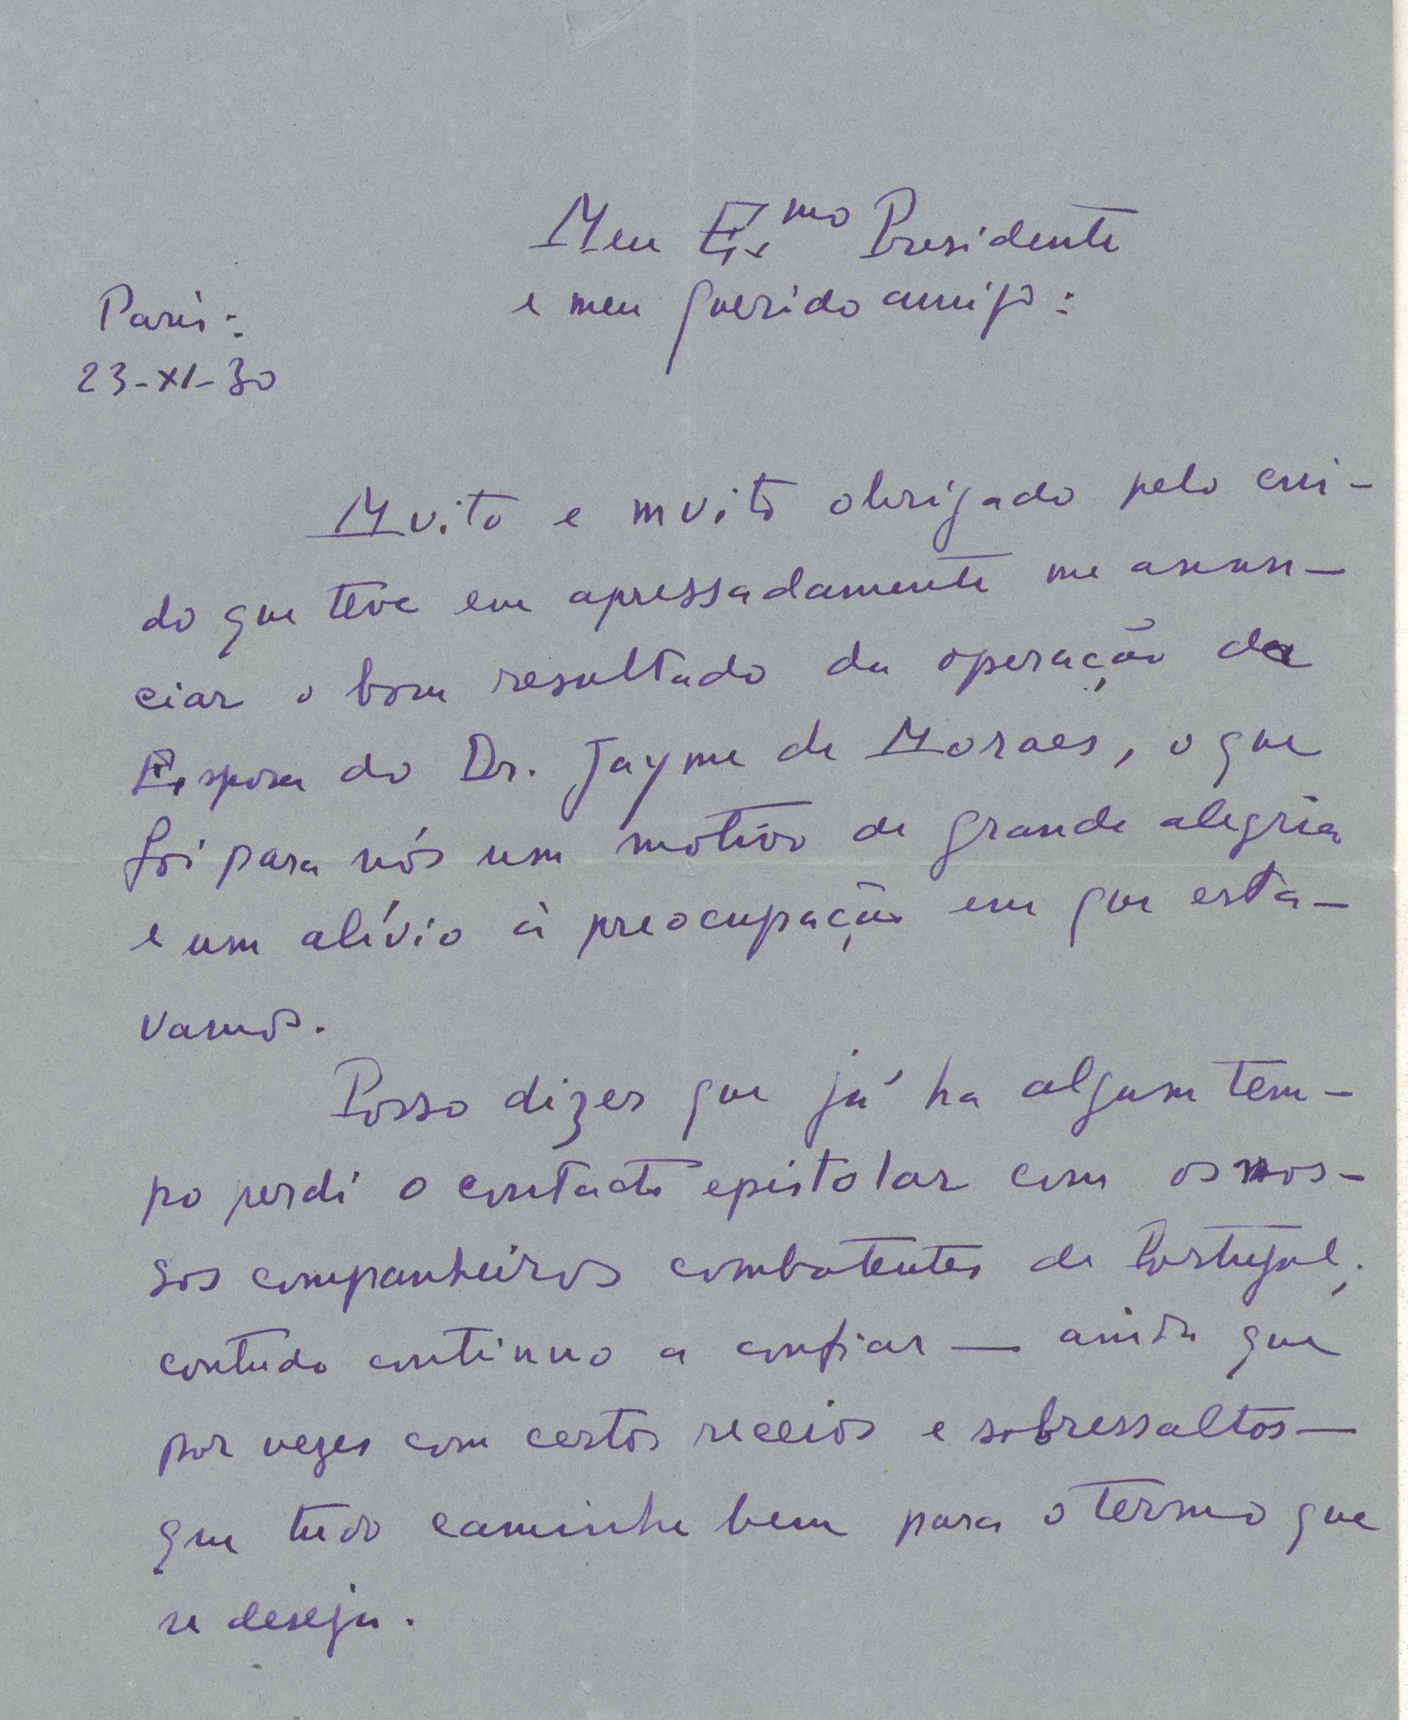 Meu Ex.mo Presidente
e meu querido amigo:
Paris:
23-XI-30
Muito e muito obrigado pelo cui-
do que teve em apressadamente me anun-
ciar o bom resultado da operação da
Esposa do Dr. Jayme de Moraes, o que
foi para nós um motivo de grande alegria
e um alívio à preocupação em que esta-
vamos.
Posso dizer que já ha algum tem-
po perdi o contacto epistolar com os nos-
sos companheiros combatentes de Portugal;
contudo continuo a confiar — ainda que
por vezes com certos receios e sobressaltos —
que tudo caminhe bem para o termo que
se deseja.